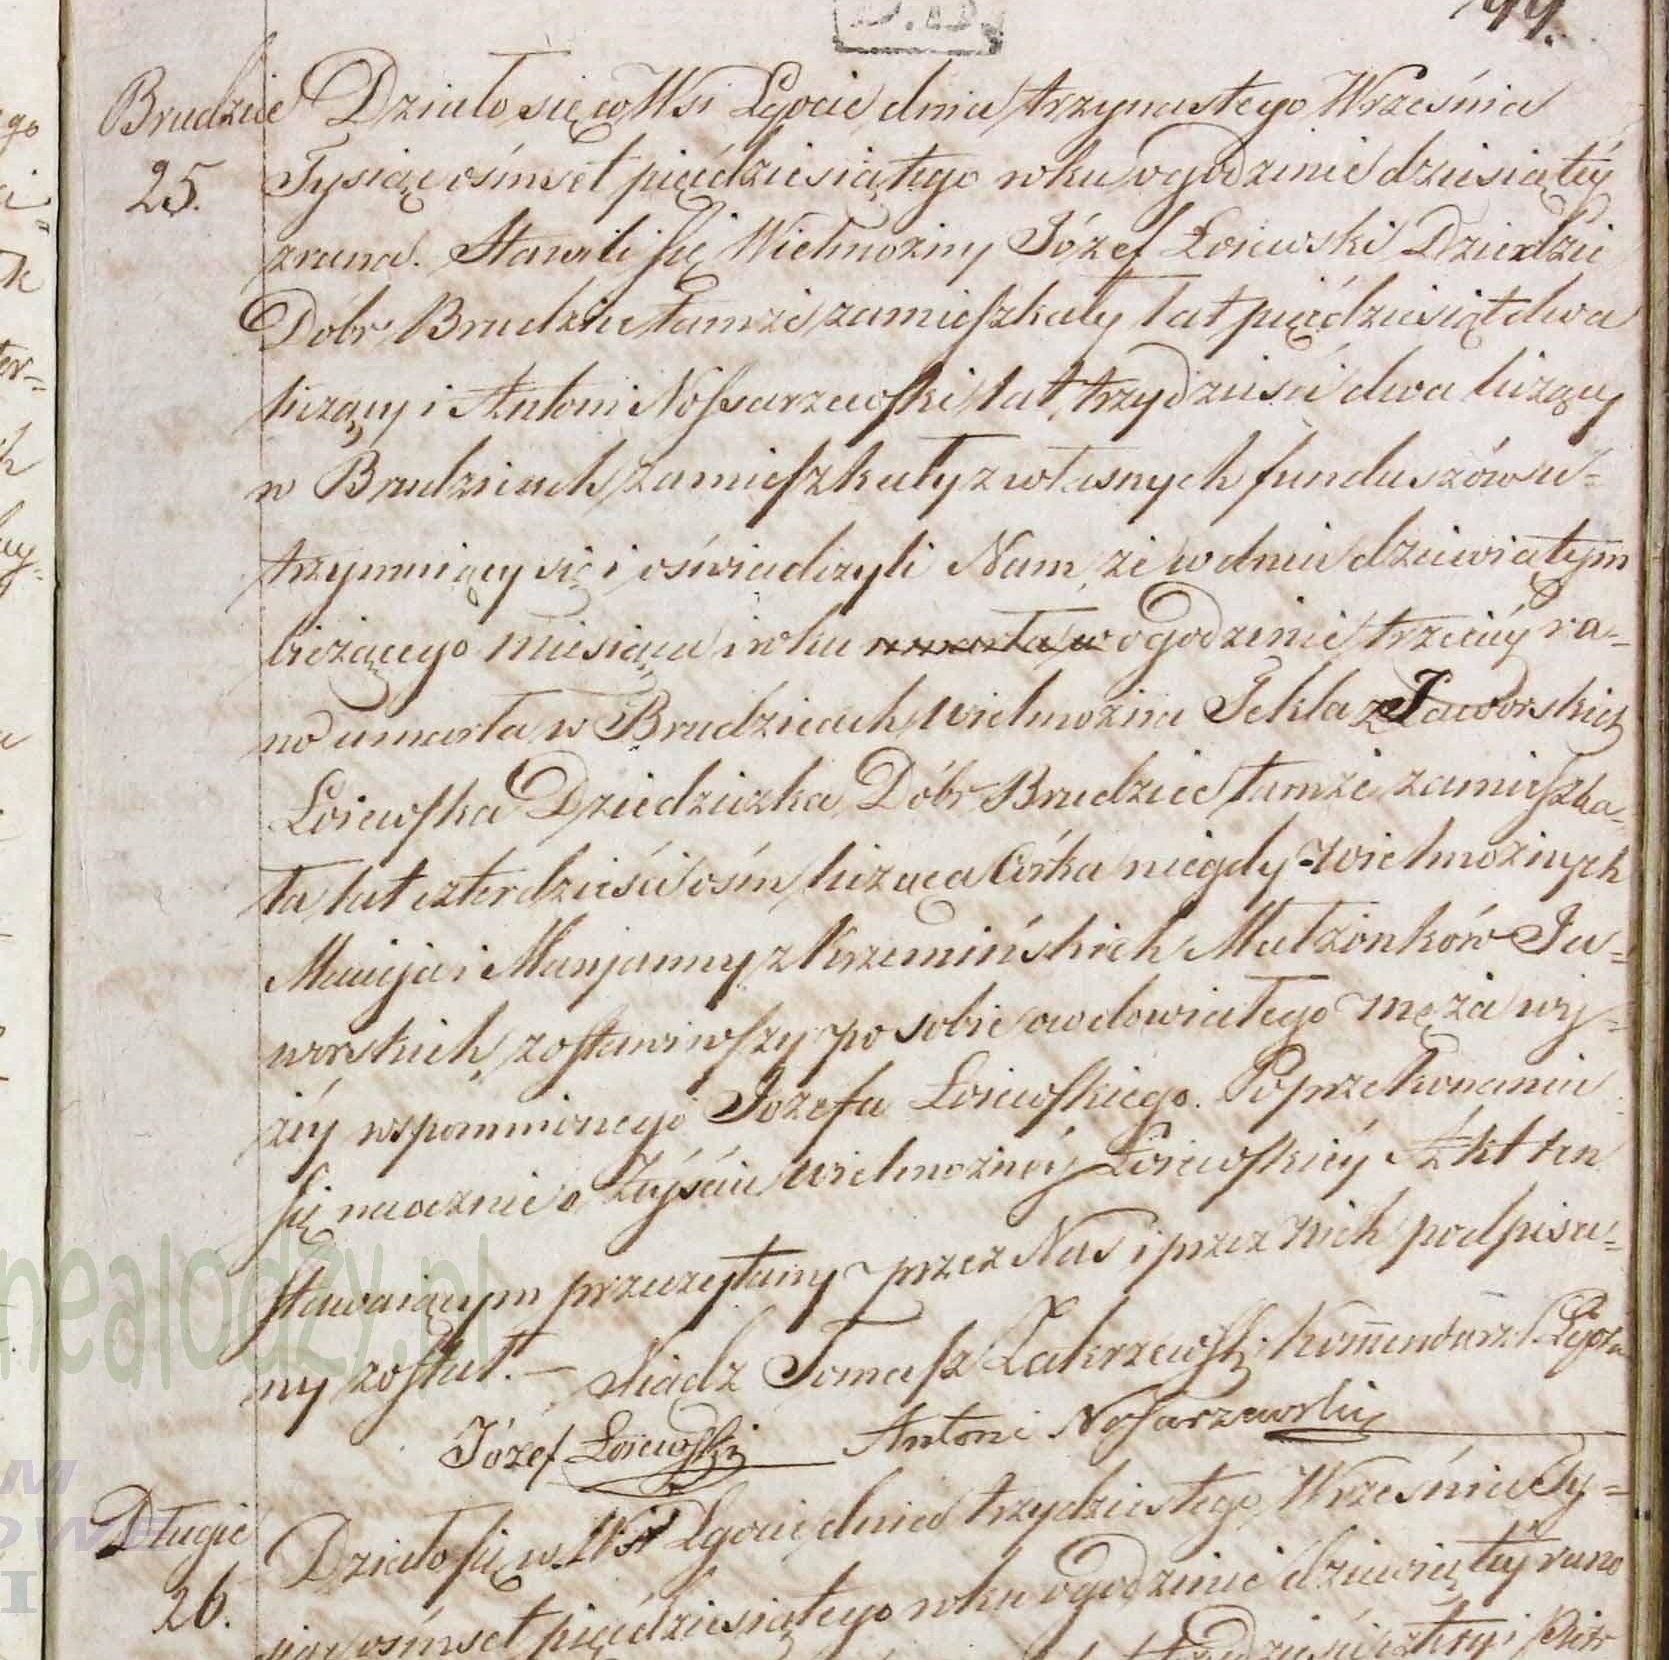 99.
Brudzice Działo się w Wsi Lgocie dnia trzynastego Września
25. Tysiąc ośmset pięćdziesiątego roku o godzinie dziesiątéy
zrana. Stawili się Wielmożny Józef Łosiewski Dziedzic
Dóbr Brudzice tamże zamieszkały lat pięćdziesiąt dwa
liczący i Antoni Nossarzewski lat trzydzieści dwa liczący
w Brudzicach zamieszkały z własnych funduszów u-
trzymuiący się i oświadczyli Nam, że w dniu dziewiątym
bieżącego miesiąca i roku umarła w o godzinie trzeciéy ra-
no umarła w Brudzicach wielmożna Tekla z Jaworskich
Łosiewska Dziedziczka Dóbr Brudzice tamże zamieszka-
ła lat czterdzieści ośm licząca Córka niegdy wielmożnych
Macieja i Maryanny z Krzemińskich Małżonków Ja-
worskich, zostawiwszy po sobie owdowiałego męża wy-
żéy wspomnionego Józefa Łosiewskiego. Po przekonaniu
się naocznie o Zeyściu wielmożnéy Łosiewskiéy Akt ten
stawaiącym przeczytany przez Nas i przez nich podpisa-
ny został. — Xiądz Tomasz Zakrzewski Kommendarz Lgocki
Józef Łosiewski Antoni Nosarzewski
Długie Działo się w Wsi Lgocie dnia trzydziestego Września Ty-
26. siąc ośmset pięćdziesiątego roku o godzinie dziewiątéy rano
nealodzy.pl